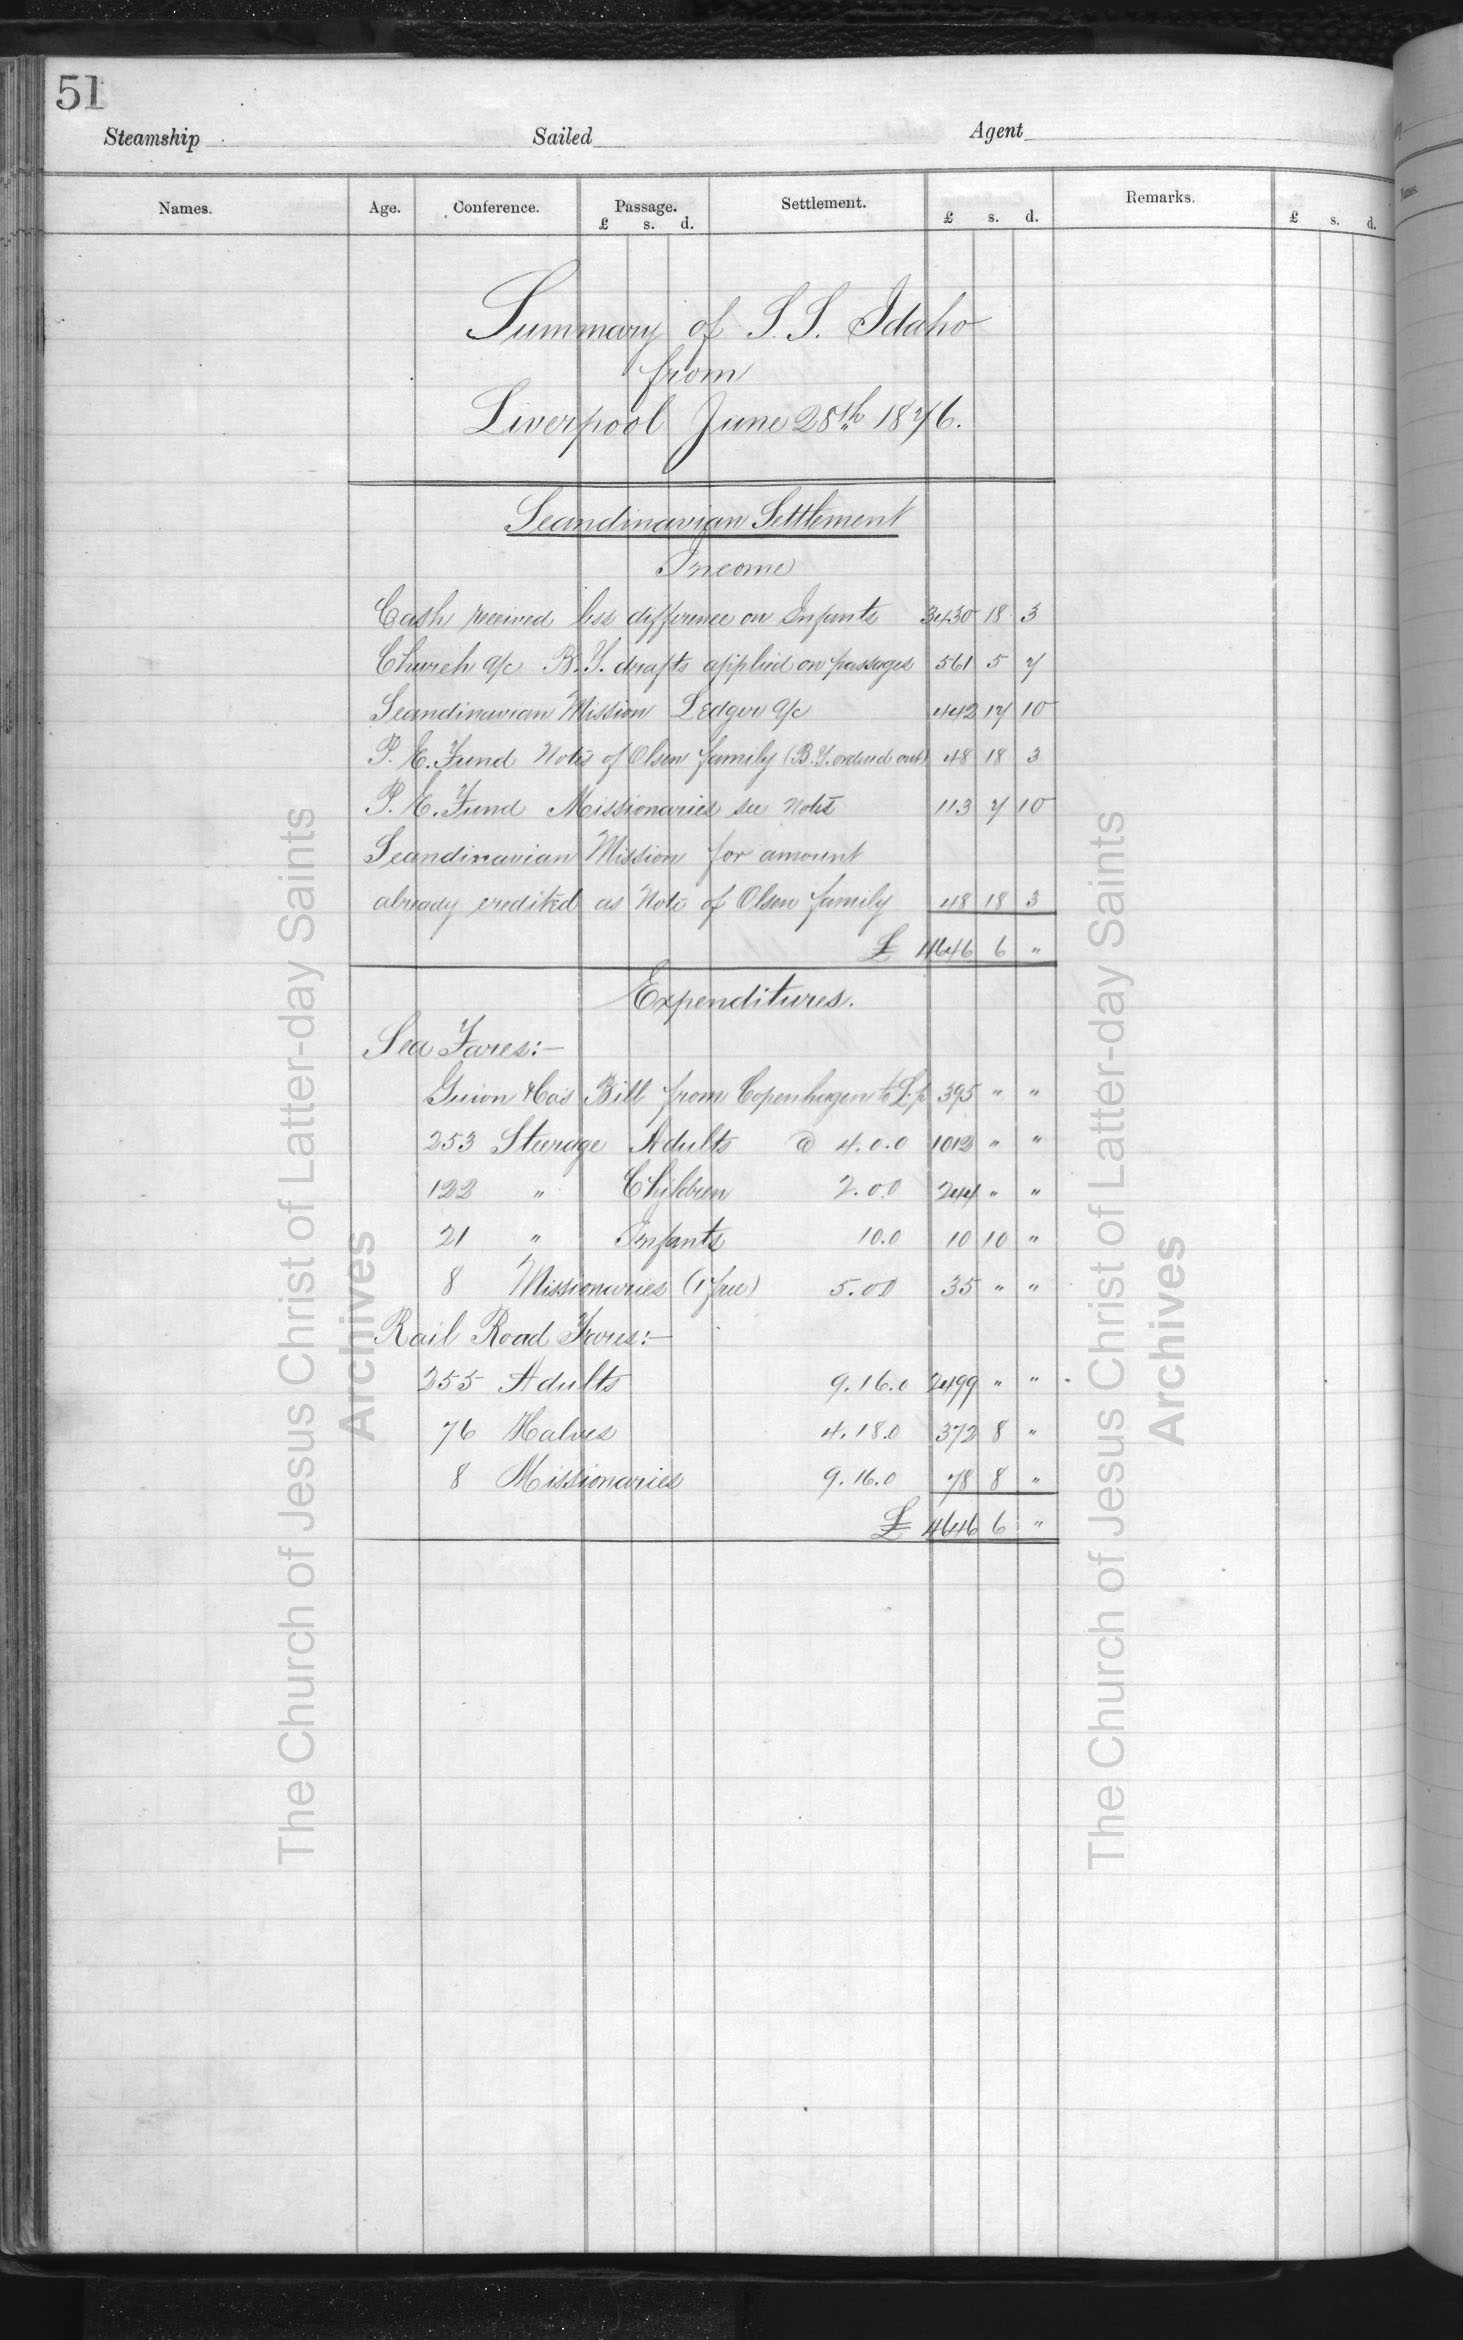 51
Steamship Sailed Agent
Names. Age. Conference. Passage. Settlement. Remarks.
£ s. d. £ s. d. £ s. d.
Summary of S.S. Idaho
from
Liverpool June 28th 1876.
Scandinavian Settlement
Income
Cash received less difference on Infants 3430 18 3
Church a/c B.Y. drafts applied on passages 561 5 7
Scandinavian Mission Ledger a/c 442 17 10
P. E. Fund Note of Olsen family (B.Y. ordered out) 48 18 3
P. E. Fund Missionaries see Note 113 7 10
Scandinavian Mission for amount
already credited as Note of Olsen family 48 18 3
£ 4646 6 "
Expenditures.
Sea Fares:—
Guion & Co's Bill from Copenhagen to L.p 395 " "
253 Steerage Adults @ 4.0.0 1012 " "
122 " Children 2.0.0 244 " "
21 " Infants 10.0 10 10 "
8 Missionaries (1 free) 5.0.0 35 " "
Rail Road Fares:—
255 Adults 9.16.0 2499 " "
76 Halves 4.18.0 372 8 "
8 Missionaries 9.16.0 78 8 "
£ 4646 6 "
The Church of Jesus Christ of Latter-day Saints
Archives
The Church of Jesus Christ of Latter-day Saints
Archives
Names.